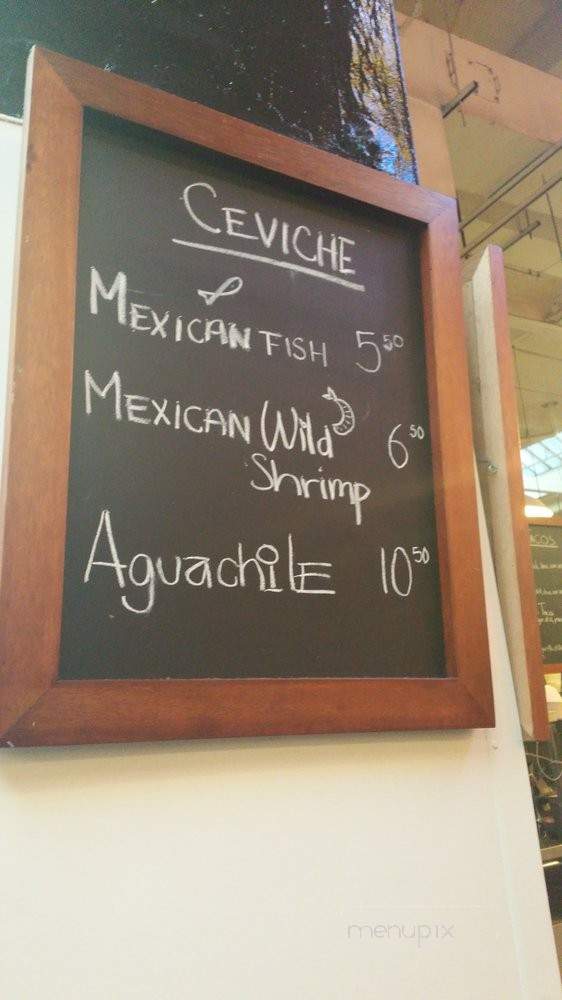 CEVICHE
MEXICAN FISH 5 50
MEXICAN Wild 6 50
Shrimp
AguachiLE 10 50
ACOS
Taco
menupix